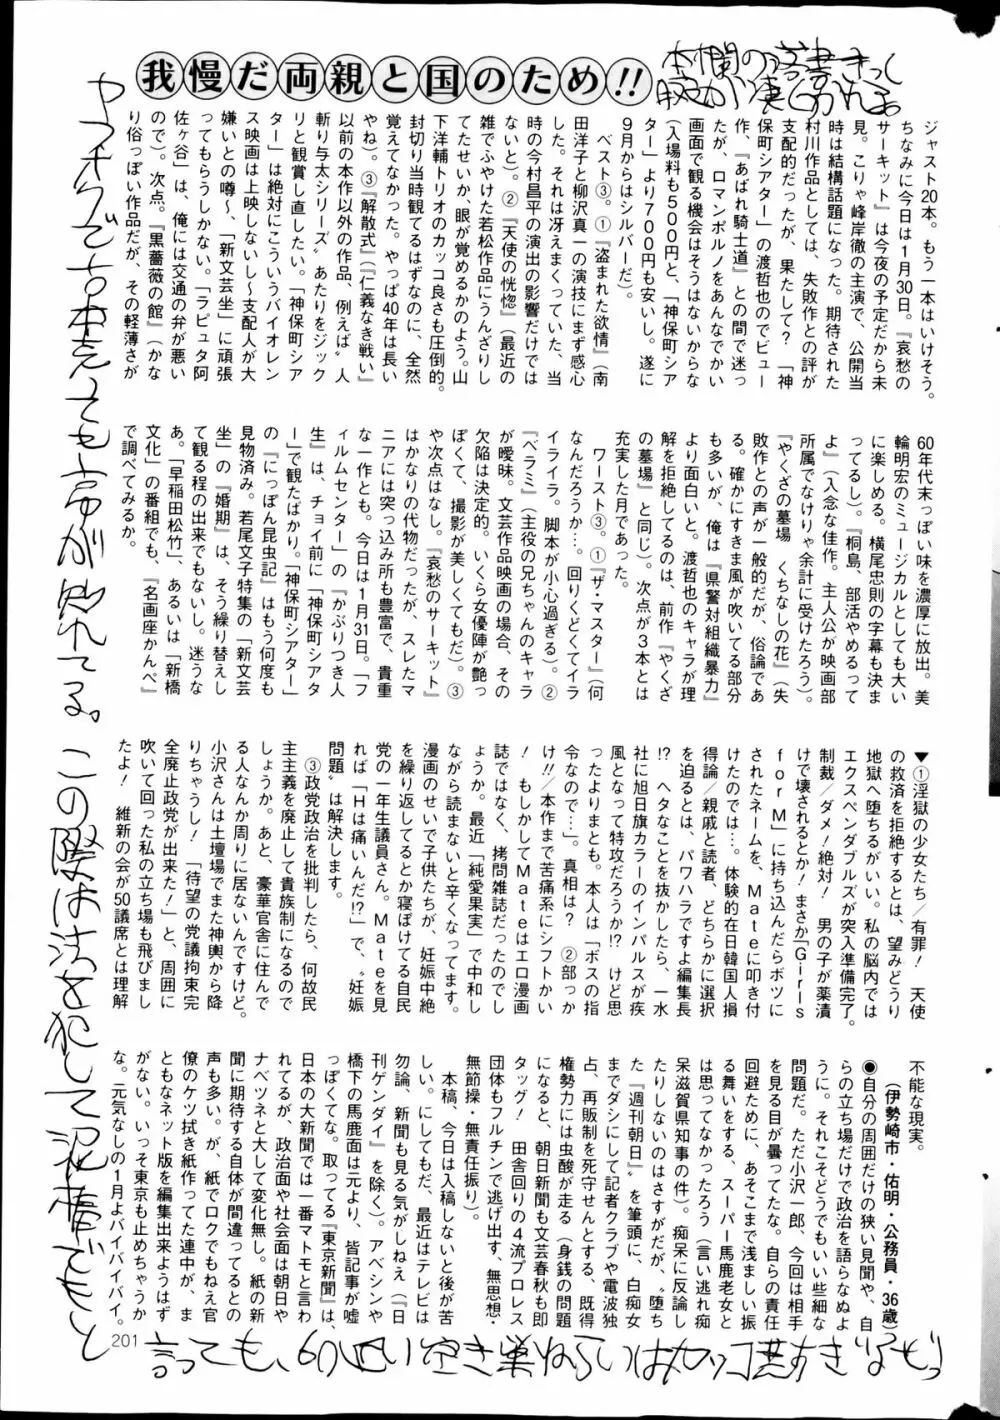 我慢だ両親と国のため!!
ジャスト20本。もう一本はいけそう。
ちなみに今日は1月30日。『哀愁の
サーキット』は今夜の予定だから未
見。こりゃ峰岸徹の主演で、公開当
時は結構話題になった。期待された
村川作品としては、失敗作との評が
支配的だったが、果たして？「神
保町シアター」の渡哲也のでビュー
作、『あばれ騎士道』との間で迷っ
たが、ロマンポルノをあんなでかい
画面で観る機会はそうはないからな
(入場料も500円と、「神保町シア
ター」より700円も安いし。遂に
9月からはシルバーだ。
ベスト③。①『盗まれた欲情』(南
田洋子と柳沢真一の演技にまず感心
した。それは冴えまくっていた、当
時の今村昌平の演出の影響だけでは
ないと)。②『天使の恍惚』(最近の
雑でふやけた若松作品にうんざりし
てたせいか、眼が覚めるかのよう。山
下洋輔トリオのカッコ良さも圧倒的。
封切り当時観てるはずなのに、全然
覚えてなかった。やっぱ40年は長い
やね)。③『解散式』(『仁義なき戦い』
以前の本作以外の作品、例えば〝人
斬り与太シリーズ〟あたりをジック
リと観賞し直したい。「神保町シア
ター」は絶対にこういうバイオレン
ス映画は上映しないし〜支配人が大
嫌いとの噂〜、「新文芸坐」に頑張
ってもらうしかない。「ラピュタ阿
佐ヶ谷」は、俺には交通の弁が悪い
ので)。次点。『黒薔薇の館』(かな
り俗っぽい作品だが、その軽薄さが
60年代末っぽい味を濃厚に放出。美
輪明宏のミュージカルとしても大い
に楽しめる。横尾忠則の字幕も決ま
ってるし)。『桐島、部活やめるって
よ』(入念な佳作。主人公が映画部
所属でなけりゃ余計に受けたろう)。
『やくざの墓場 くちなしの花』(失
敗作との声が一般的だが、俗論であ
る。確かにすきま風が吹いてる部分
も多いが、俺は『県警対組織暴力』
より面白いと。渡哲也のキャラが理
解を拒絶してるのは、前作『やくざ
の墓場』と同じ)。次点が3本とは
充実した月であった。
ワースト③。①『ザ・マスター』(何
なんだろうか…。回りくどくてイラ
イライラ。脚本が小心過ぎる)。②
『ベラミ』(主役の兄ちゃんのキャラ
が曖昧。文芸作品映画の場合、その
欠陥は決定的。いくら女優陣が艶っ
ぽくて、撮影が美しくてもだ)。③
や次点はなし。『哀愁のサーキット』
はかなりの代物だったが、スレたマ
ニアには突っ込み所も豊富で、貴重
な一作とも。今日は1月31日。「フ
ィルムセンター」の『かぶりつき人
生』は、チョイ前に「神保町シアタ
ー」で観たばかり。「神保町シアター」
の『にっぽん昆虫記』はもう何度も
見物済み。若尾文子特集の「新文芸
坐」の『婚期』は、そう繰り替えし
て観る程の出来でもないし。迷うな
あ。「早稲田松竹」、あるいは「新橋
文化」の番組でも、『名画座かんぺ』
で調べてみるか。
▼①淫獄の少女たち／有罪！ 天使
の救済を拒絶するとは、望みどうり
地獄へ堕ちるがいい。私の脳内では
エクスペンダブルズが突入準備完了。
制裁／ダメ！絶対！ 男の子が薬漬
けで壊されるとか！まさか「Girls
forM」に持ち込んだらボツに
されたネームを、Mateに叩き付
けたのでは…。体験的在日韓国人損
得論／親戚と読者、どちらかに選択
を迫るとは、パワハラですよ編集長
!? ヘタなことを抜かしたら、一水
社に旭日旗カラーのインパルスが疾
風となって特攻だろうか!? けど思
ったよりまとも。本人は「ボスの指
令なので…」。真相は？ ②部っか
け!!／本作まで苦痛系にシフトかい
! もしかしてMateはエロ漫画
誌ではなく、拷問雑誌だったのでし
ょうか。最近「純愛果実」で中和し
ながら読まないと辛くなってます。
漫画のせいで子供たちが、妊娠中絶
を繰り返してるとか寝ぼけてる自民
党の一年生議員さん。Mateを見
れば「Hは痛いんだ!?」で、〝妊娠
問題〟は解決します。
③政党政治を批判したら、何故民
主主義を廃止して貴族制になるので
しょうか。あと、豪華官舎に住んで
る人なんか周りに居ないんですけど。
小沢さんは土壇場でまた神輿から降
りちゃうし！ 「待望の党議拘束完
全廃止政党が出来た！」と、周囲に
吹いて回った私の立ち場も飛びまし
たよ！ 維新の会が50議席とは理解
不能な現実。
(伊勢崎市・佑明・公務員・36歳)
●自分の周囲だけの狭い見聞や、自
らの立ち場だけで政治を語らなぬよ
うに。それこそどうでもいい些細な
問題だ。ただ小沢一郎、今回は相手
を見る目が曇ってたな。自らの責任
回避ために、あそこまで浅ましい振
る舞いをする、スーパー馬鹿老女と
は思ってなかったろう(言い逃れ痴
呆滋賀県知事の件)。痴呆に反論し
たりしないのはさすがだが、〝堕ち
た『週刊朝日』〟を筆頭に、白痴女
までダシにして記者クラブや電波独
占、再販制を死守せんとする、既得
権勢力には虫酸が走る(身銭の問題
になると、朝日新聞も文芸春秋も即
タッグ！ 田舎回りの4流プロレス
団体もフルチンで逃げ出す、無思想・
無節操・無責任振り)。
本稿、今日は入稿しないと後が苦
しい。にしてもだ、最近はテレビは
勿論、新聞も見る気がしねぇ(『日
刊ゲンダイ』を除く)。アベシンや
橋下の馬鹿面は元より、皆記事が嘘
っぽくてな。取ってる『東京新聞』は、
日本の大新聞では一番マトモと言わ
れてるが、政治面や社会面は朝日や
ナベツネと大して変化無し。紙の新
聞に期待する自体が間違ってるとの
声も多い。が、紙でロクでもねえ官
僚のケツ拭き紙作ってた連中が、ま
ともなネット版を編集出来ようはず
がない。いっそ東京も止めちゃうか
な。元気なしの1月よバイバイバイ。
201
ヤフオクで古本売っても高が知れてる。この際は法を犯して泥棒でもと
言っても、60近い空き巣ねらいはカッコ悪すぎだなもっ